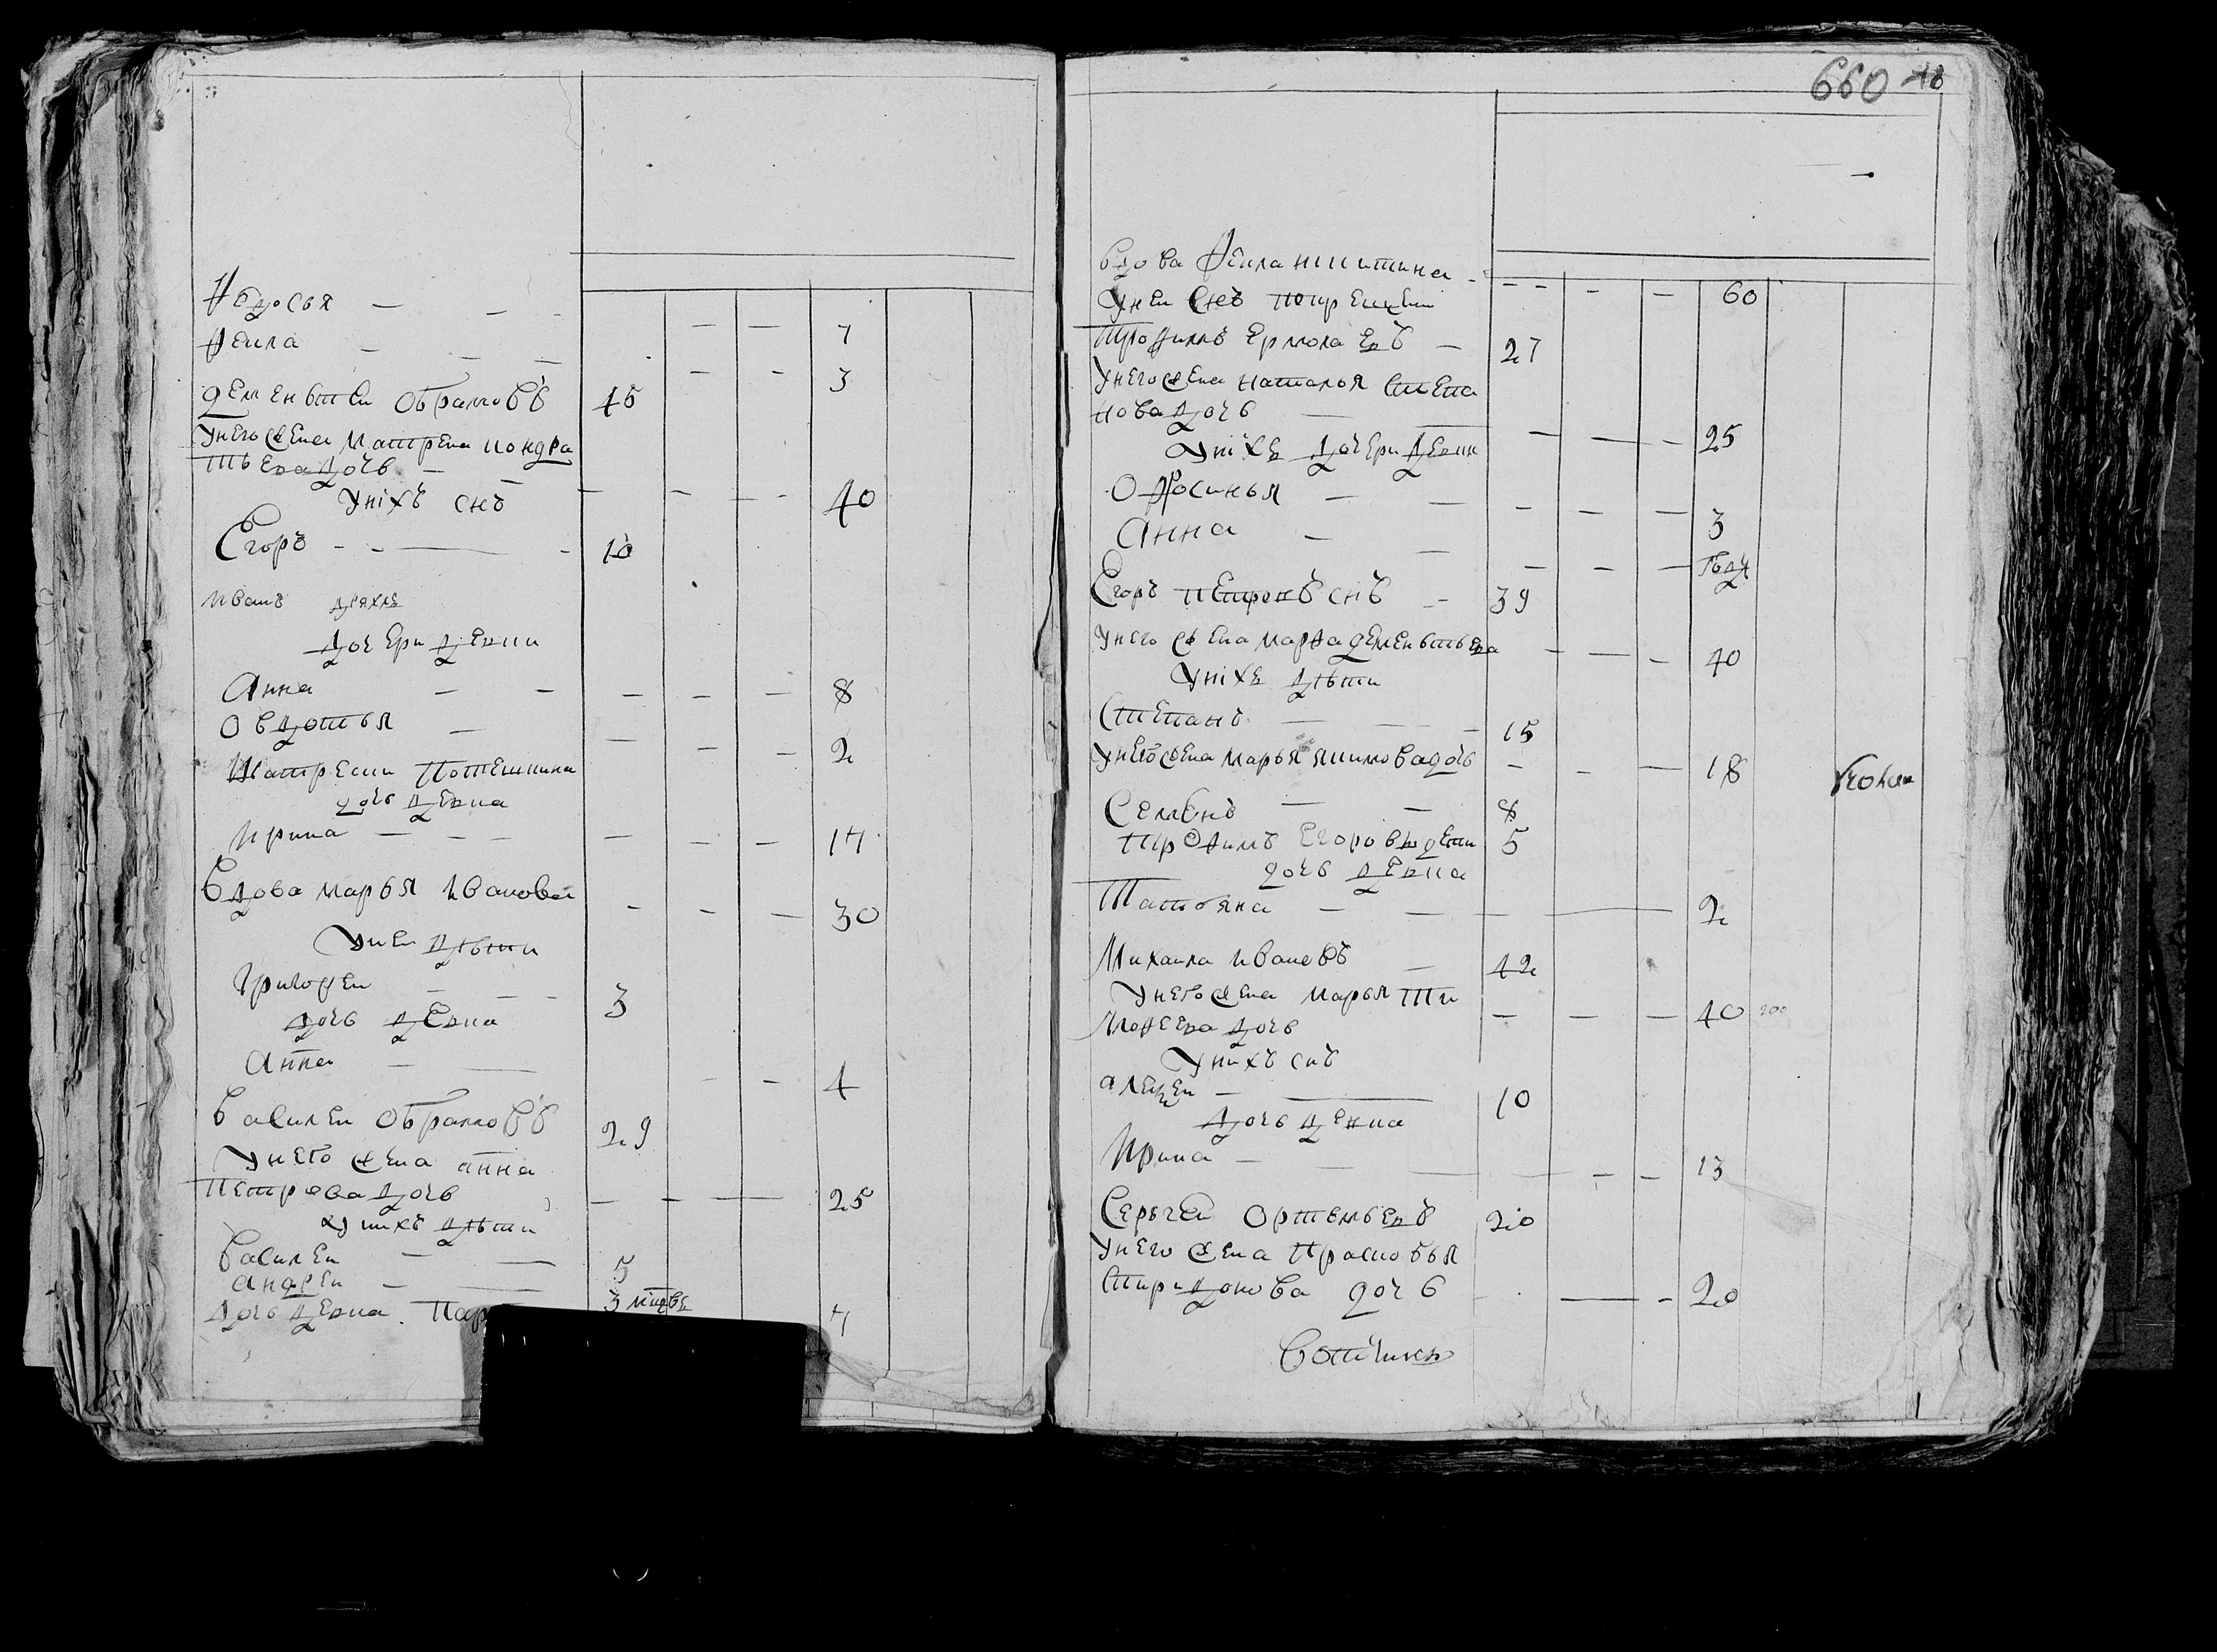 Федосья — — - — — 7
Фекла — — — — - 3
Деменьтеи Обрамовъ 45
Унего жена Матрена Кондра
тьева дочь — — — — — - 40
Унiхъ снъ
Егоръ - - — - 10
Иванъ
Дочери Девки
Анна — — — — — 8
Овдотья — — — - 2
дочь Девка
Ирина — — — — — - 17
Вдова Марья Ивановa - - — 30
Унеи Дѣти
Григореи — — - 3
Дочь Девка
Анна — — - - 4
Василеи Обрамовъ 29
Унего жена Анна
Петрова Дочь — - — 25
Унихъ Дѣти
Василеи — — 5
Андреи — — 3
Дочь Девка Пар 7
660 18
Вдова Фекла Никитина - - - - — 60
Унеи снъ
Трофимъ Ермолаевъ — 27
Унего жена Наталья Степа
нова Дочь — — — - 25
Унiхъ Дочери Девки
Офросинья — — - - — 3
Анна — — — - —
Егоръ Петровъ снъ — 39
Унего жена Марфа Деменьтьева - — - 40
Унiхъ Дѣти
Степанъ — — - 15
Унего жена Марья Якимова дочь — - — 18
Семенъ — — 8
Трофимъ Егоровы дети 5
дочь Девка
Татьяна — — — — 2
Михаила Ивановъ — 42
Унего жена Марья Ти
мофеева Дочь — — — 40
Унихъ снъ
Алексеи — — 10
Дочь Девка
Ирина — — — — - - 13
Сергеи Ортемьевъ 20
Унего жена Прасковья
Спиридонова дочь - — - 20